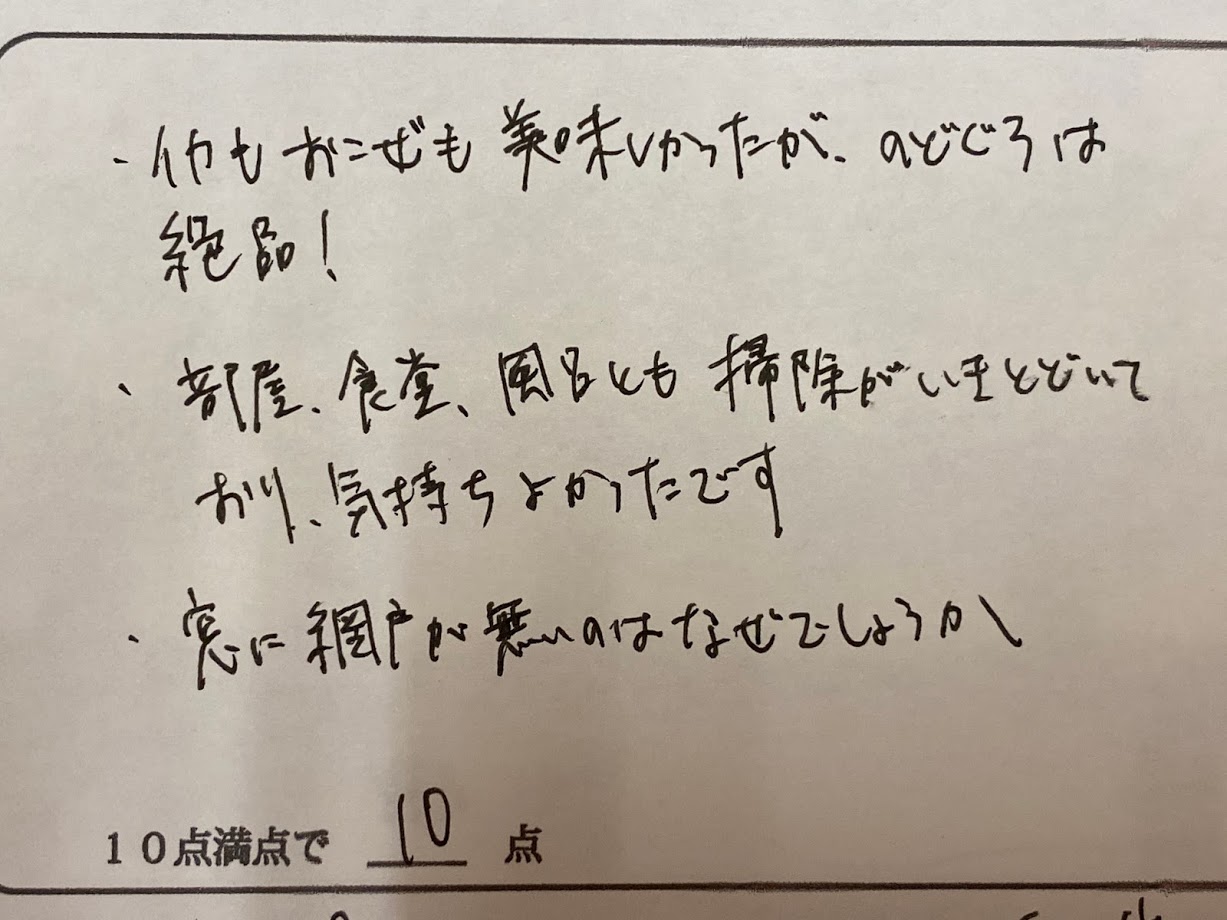 ・イカもおこぜも美味しかったが、のどぐろは
絶品!
・部屋、食堂、風呂とも掃除がいきとどいて
おり、気持ちよかったです
・窓に網戸が無いのはなぜでしょうか
10点満点で 10 点